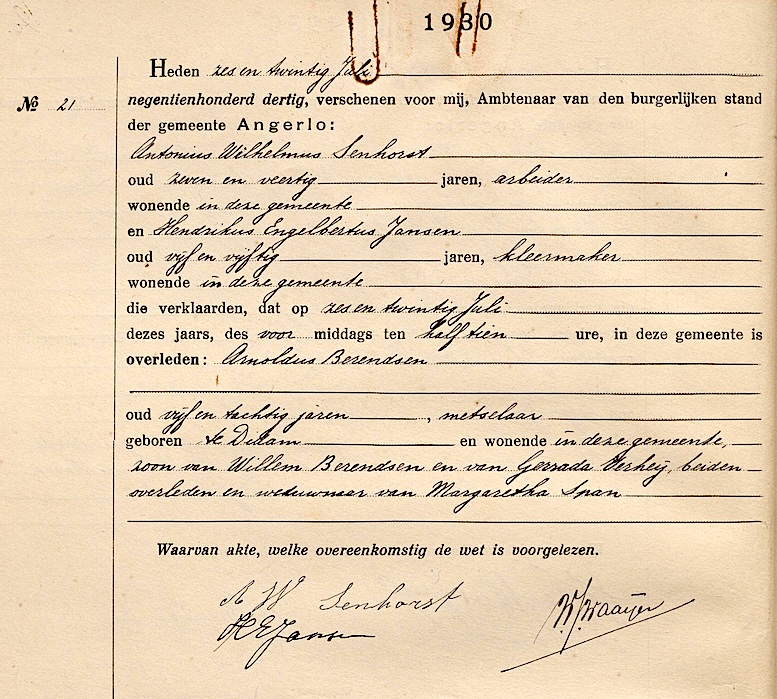 1930
Heden zes en twintig Juli
No 21
negentienhonderd dertig, verschenen voor mij, Ambtenaar van den burgerlijken stand
der gemeente Angerlo:
Antonius Wilhelmus Senhorst
oud zeven en veertig jaren, arbeider
wonende in deze gemeente
en Hendrikus Engelbertus Jansen
oud vijf en vijftig jaren, kleermaker
wonende in deze gemeente
die verklaarden, dat op zes en twintig Juli
dezes jaars, des voor middags ten half tien ure, in deze gemeente is
overleden: Arnoldus Berendsen
oud vijf en tachtig jaren, metselaar
geboren te Didam en wonende in deze gemeente,
zoon van Willem Berendsen en van Gerrada Verheij, beiden
overleden en weduwnaar van Margaretha Span
Waarvan akte, welke overeenkomstig de wet is voorgelezen.
A W Senhorst
H E Jansen